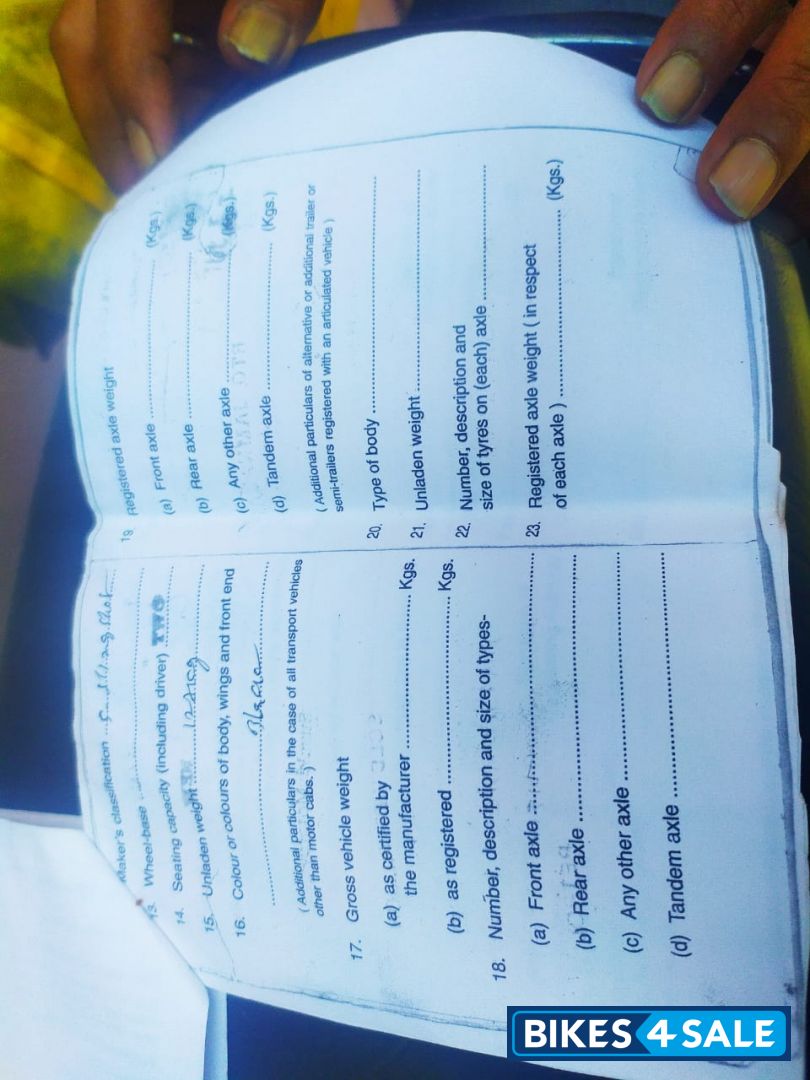 Maker's classification
13. Wheel-base ....................
14. Seating capacity (including driver) TWO
15. Unladen weight ....................
16. Colour or colours of body, wings and front end
....................
( Additional particulars in the case of all transport vehicles
other than motor cabs. )
17. Gross vehicle weight
(a) as certified by
the manufacturer .................... Kgs.
(b) as registered .................... Kgs.
18. Number, description and size of types-
(a) Front axle ....................
(b) Rear axle ....................
(c) Any other axle ....................
(d) Tandem axle ....................
19 Registered axle weight
(a) Front axle .................... (Kgs.)
(b) Rear axle .................... (Kgs.)
(c) Any other axle .................... (Kgs.)
(d) Tandem axle .................... (Kgs.)
( Additional particulars of alternative or additional trailer or
semi-trailers registered with an articulated vehicle )
20. Type of body ....................
21. Unladen weight ....................
22. Number, description and
size of tyres on (each) axle ....................
23. Registered axle weight ( in respect
of each axle ) .................... (Kgs.)
BIKES4SALE